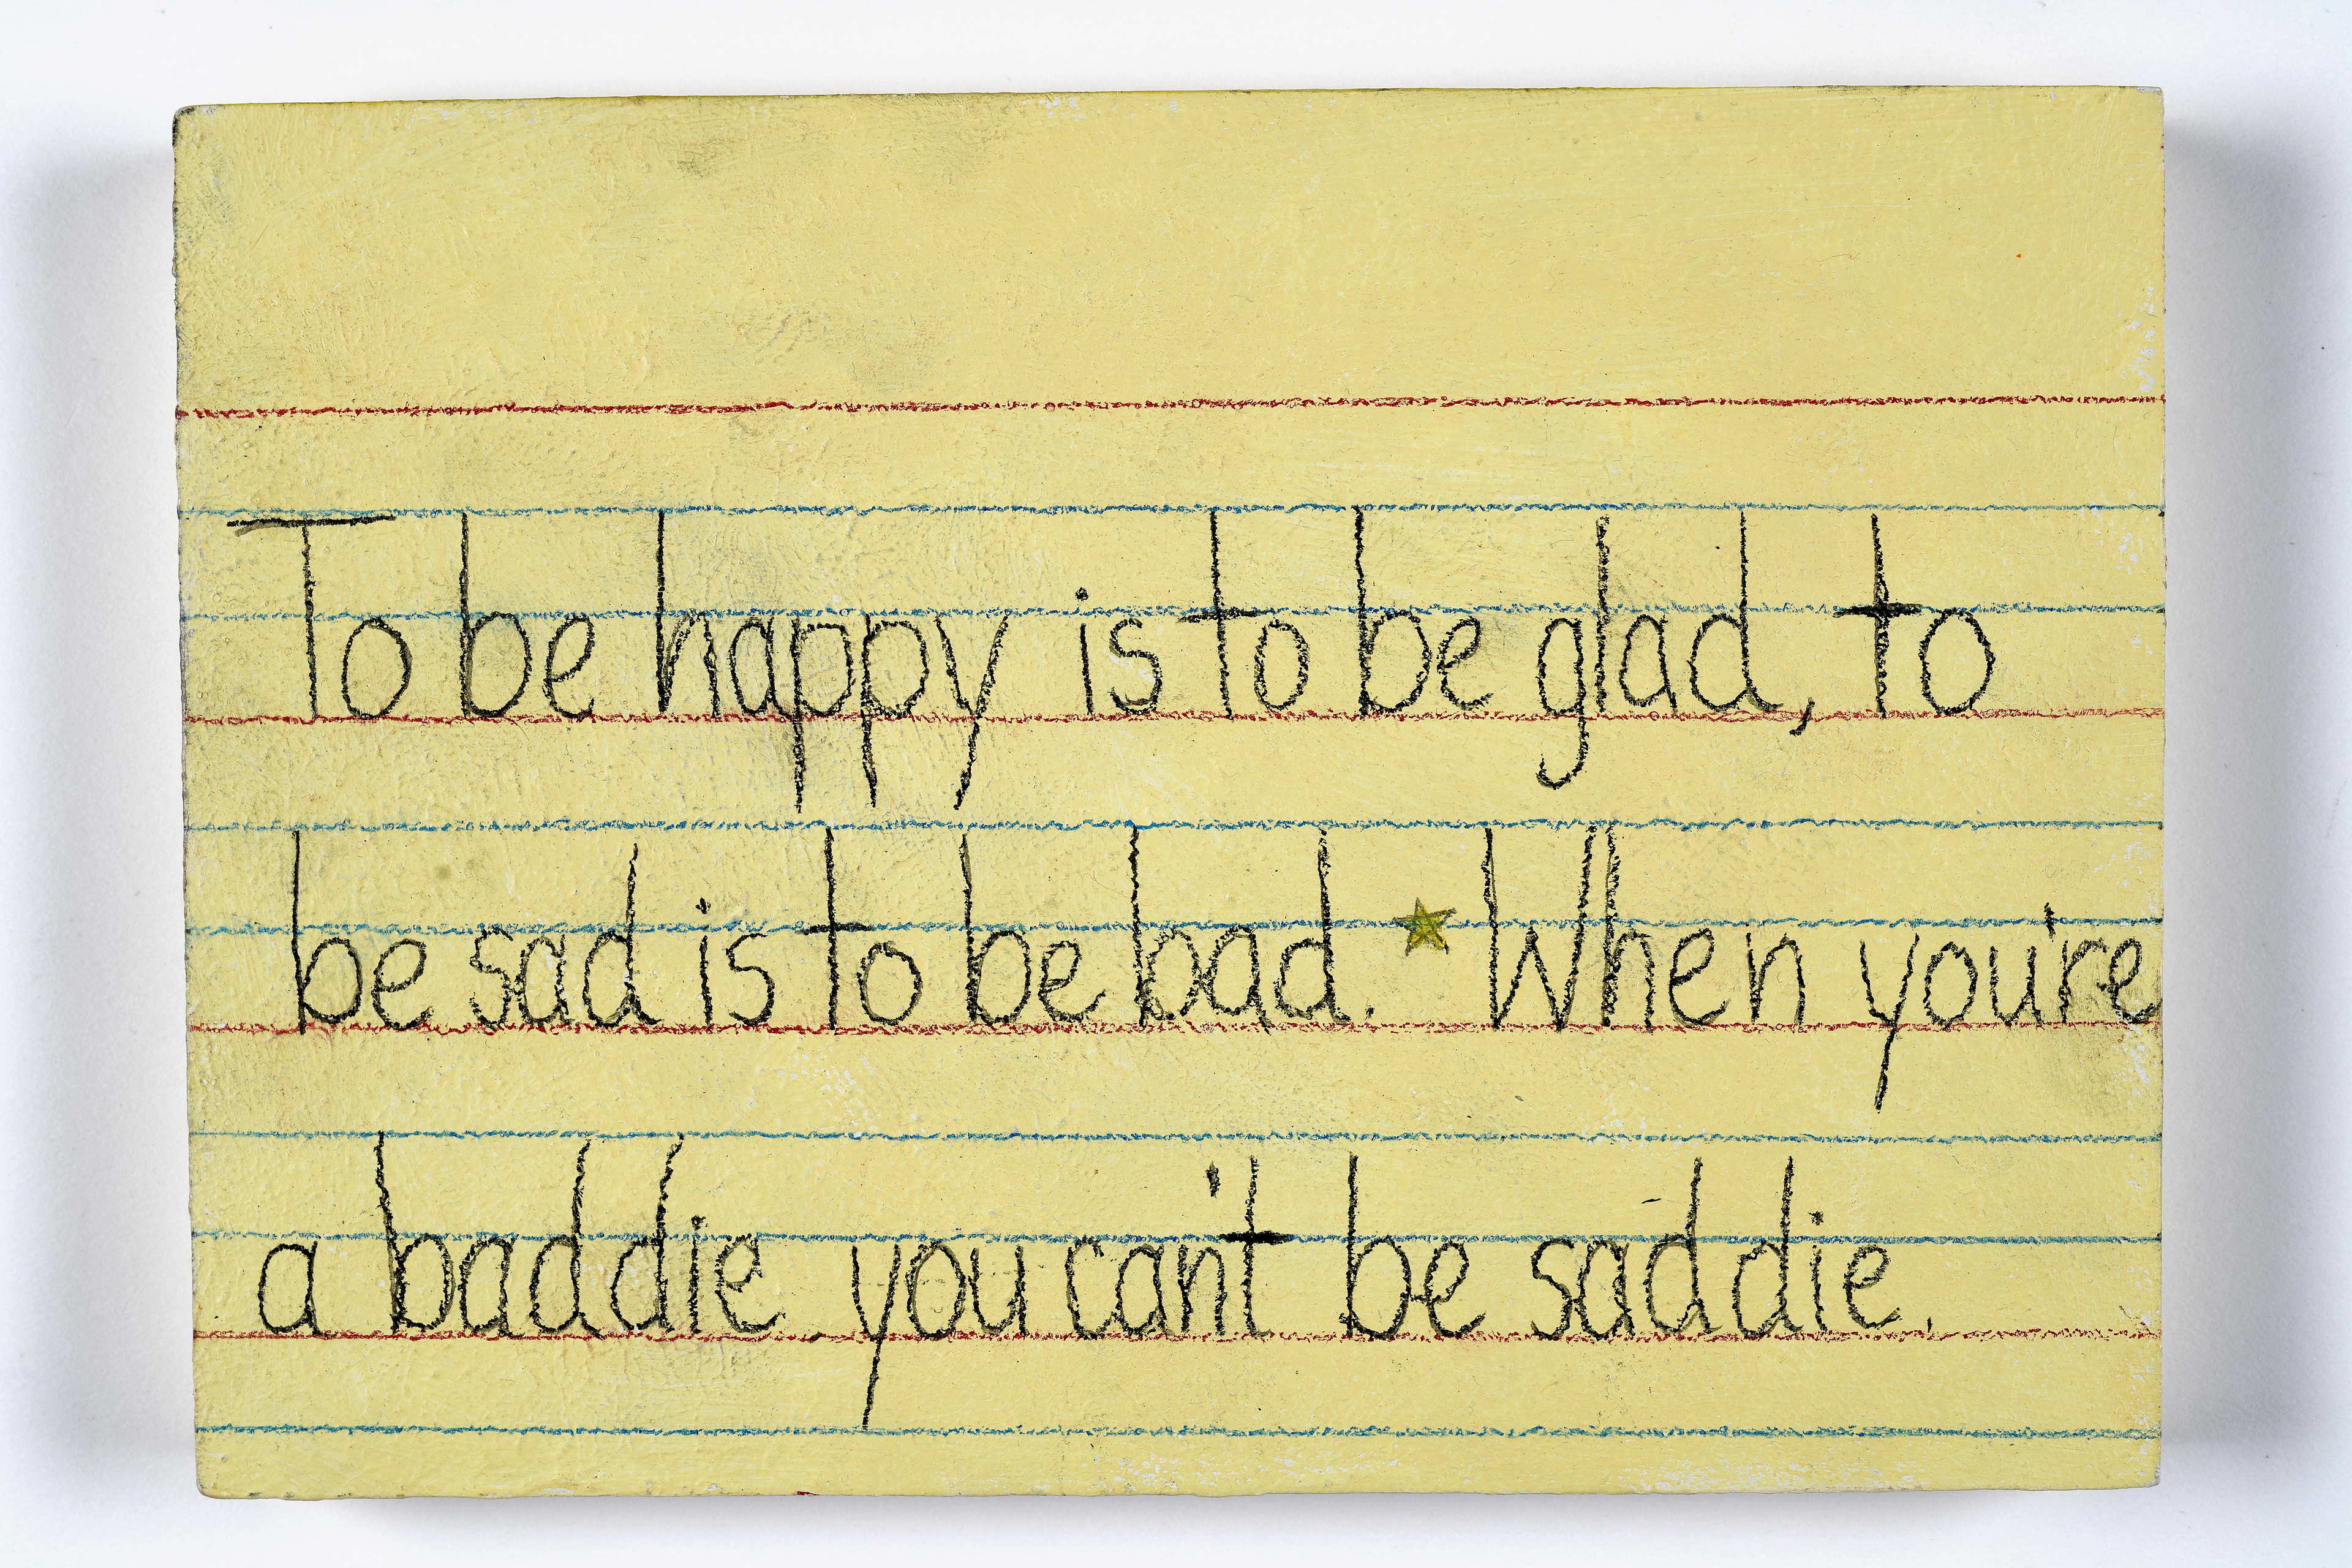 To be happy is to be glad, to
be sad is to be bad. When you're
a baddie you can't be saddie.